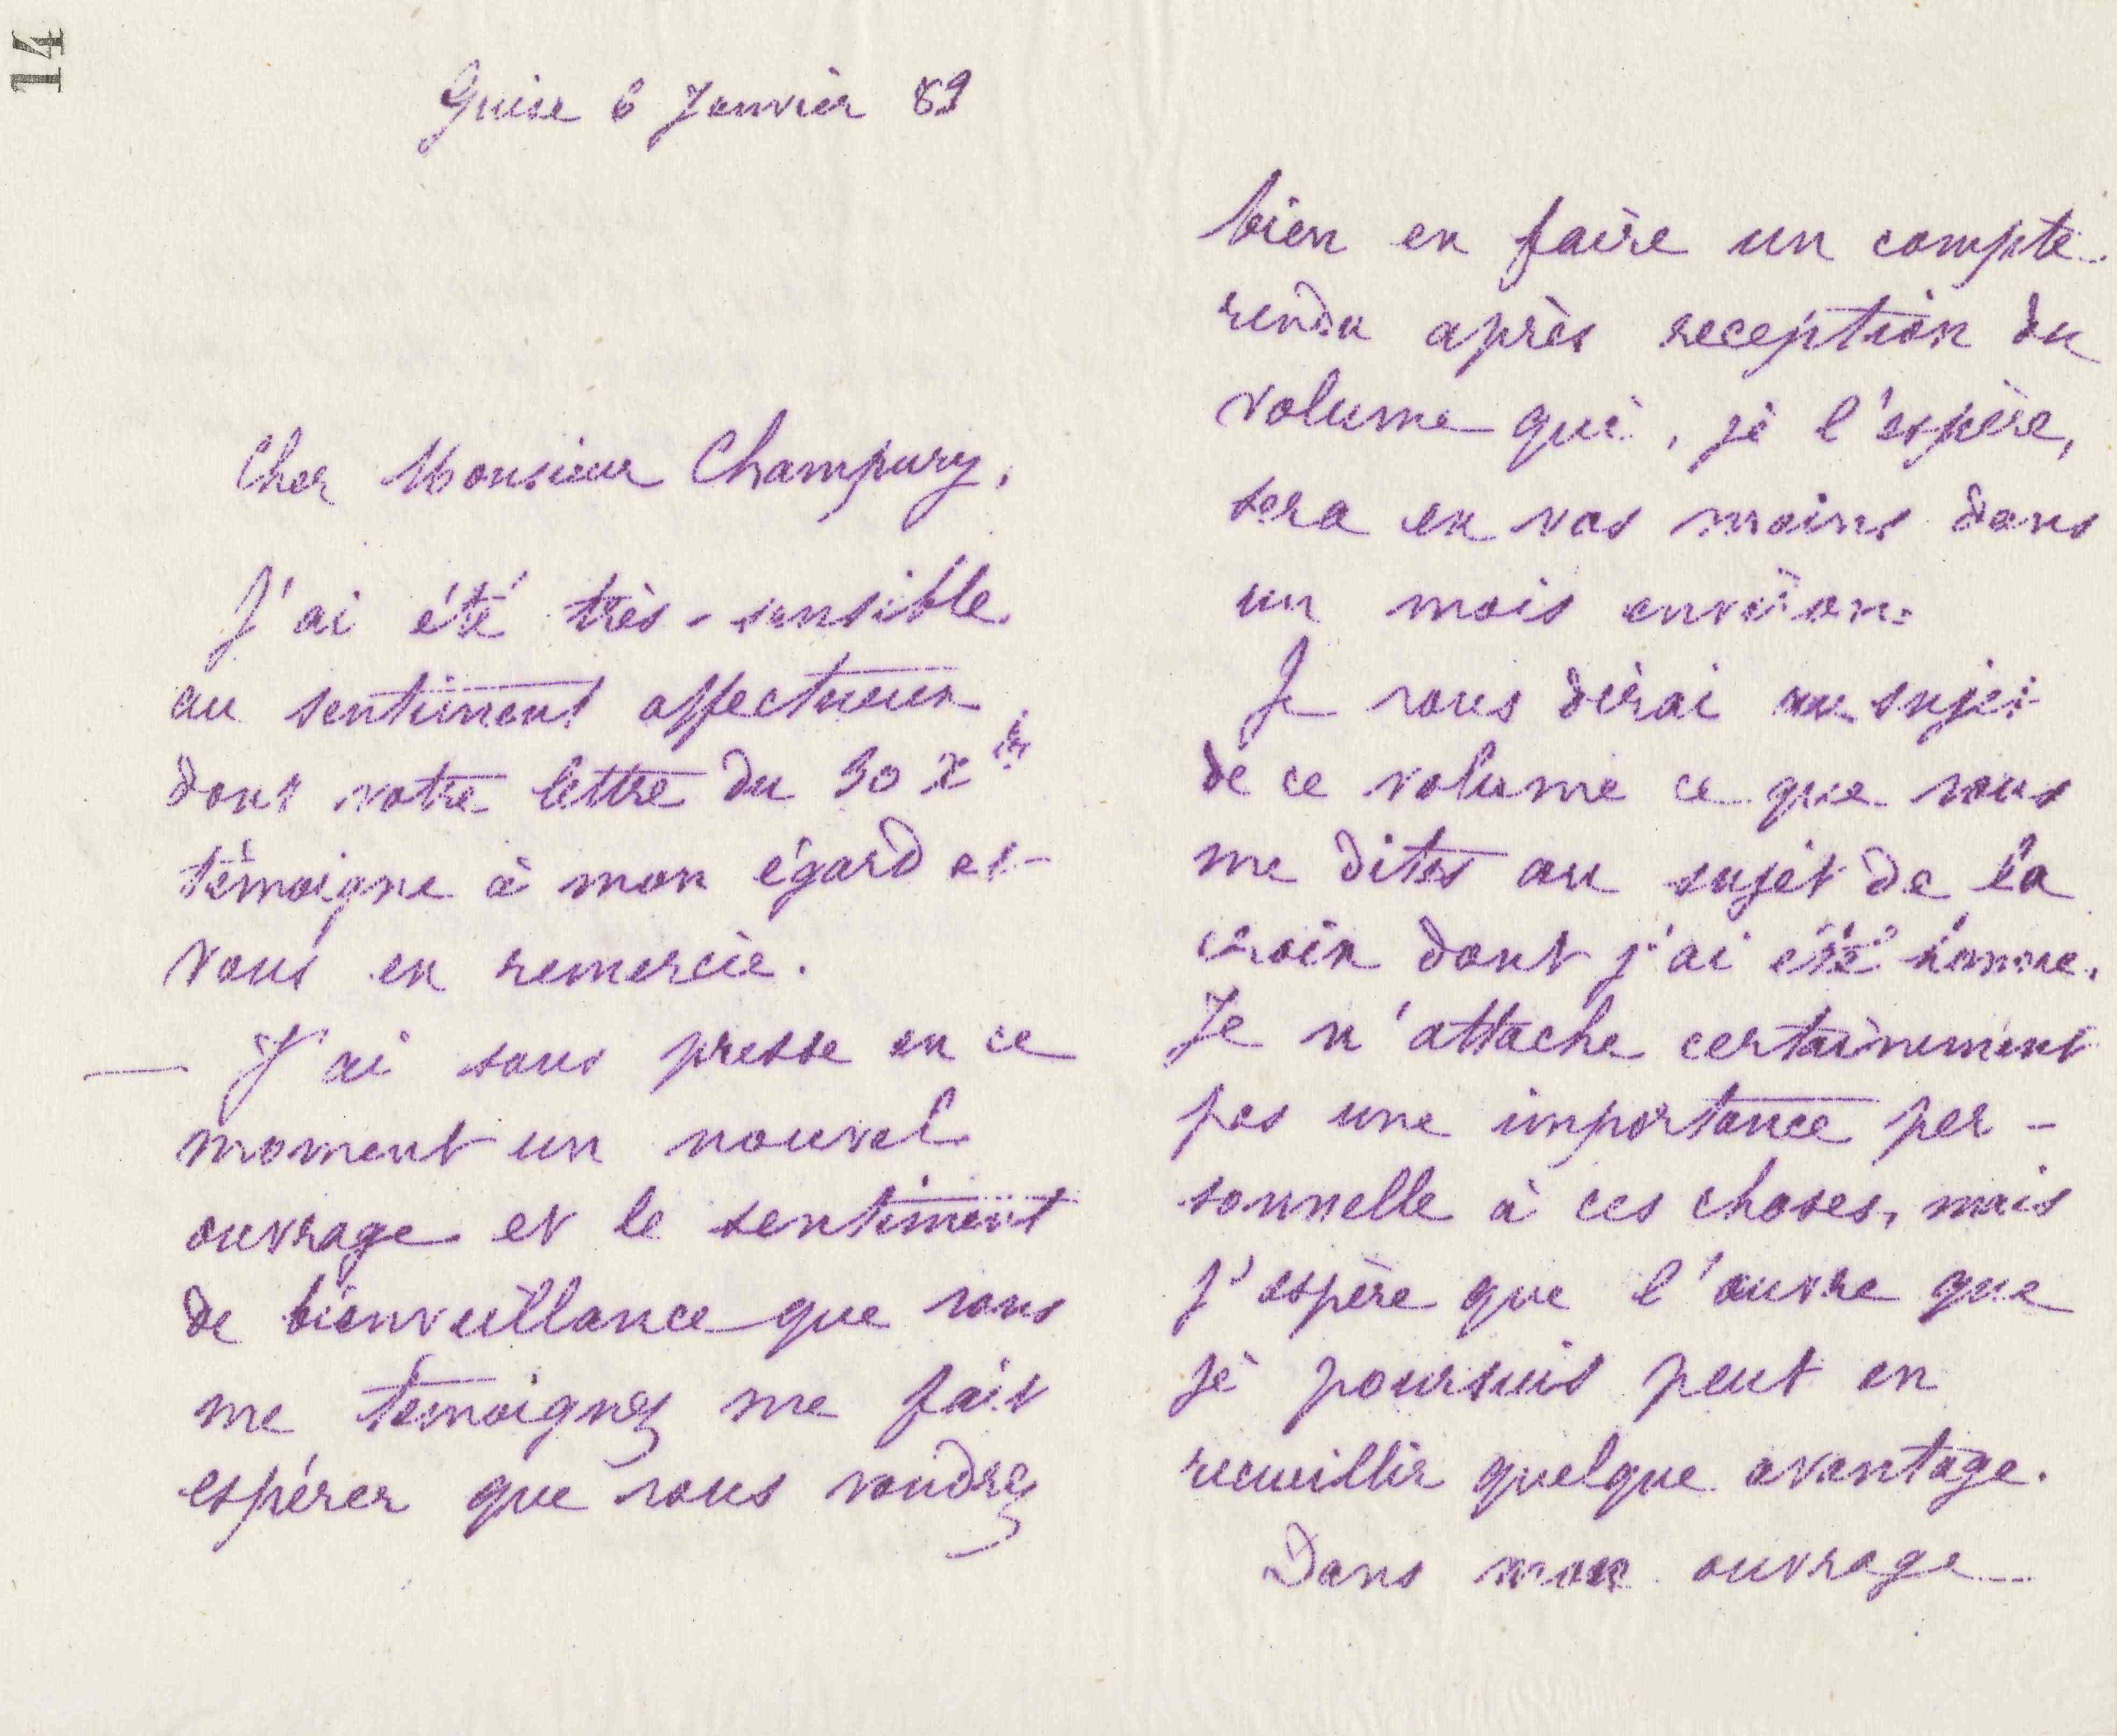 14
Guise 6 Janvier 89
Cher Monsieur Champury,
J'ai été très-sensible
au sentiment affectueux
dont votre lettre du 30 Xbre
témoigne à mon égard et
vous en remercie.
— J'ai sous presse en ce
moment un nouvel
ouvrage et le sentiment
de bienveillance que vous
me témoignez me fait
espérer que vous voudrez
bien en faire un compte-
rendu après reception du
volume qui, je l'espère,
sera en vos mains dans
un mois environ.
Je vous dirai au sujet
de ce volume ce que vous
me dites au sujet de la
croix dont j'ai été
Je n'attache certainement
pas une importance per-
sonnelle à ces choses, mais
j'espère que l'œuvre que
je poursuis peut en
recueillir quelque avantage.
Dans mon ouvrage